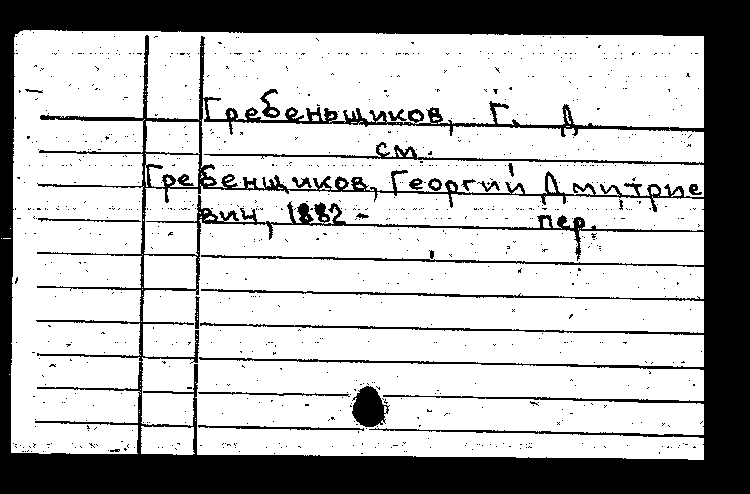 Гребеньщиков, Г. Д.
см.
Гребенщиков, Георгий Дмитрие
вич, 1882 -
пер.